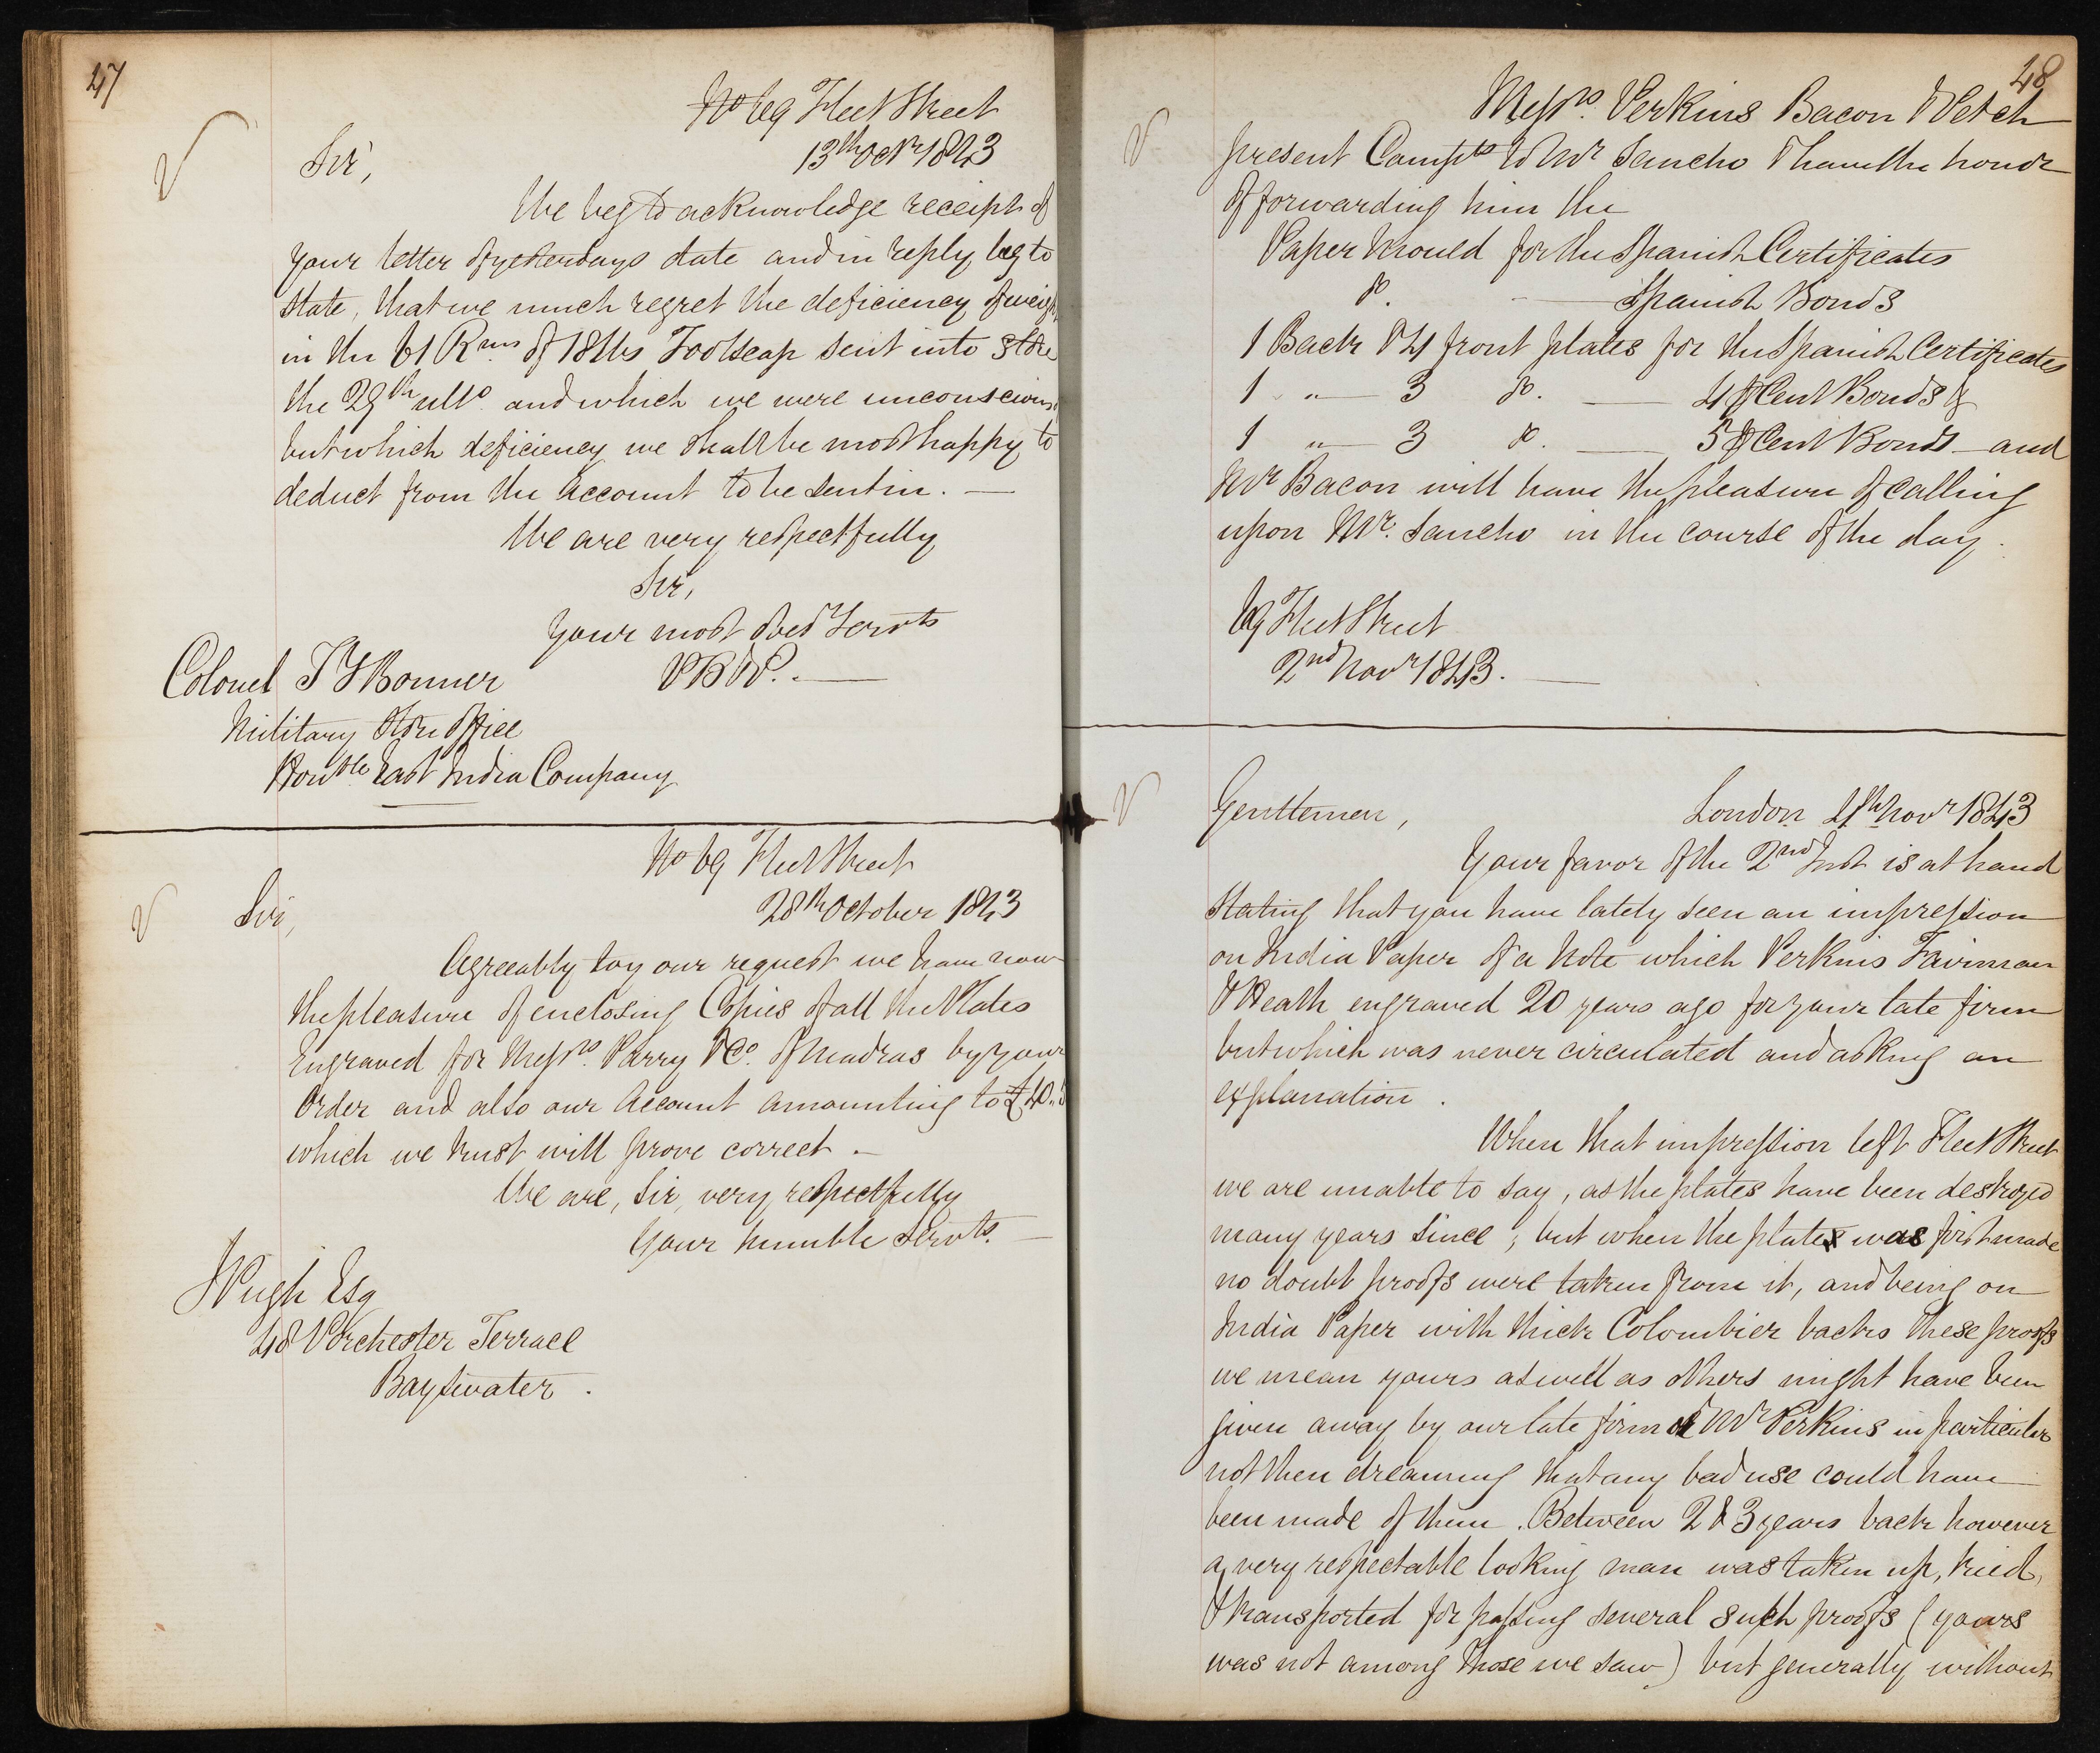 47
No 69 Fleet Street
13th Octr 1843
Sir,
We beg to acknowledge receipt of
your letter of yesterdays date and in reply beg to
state, that we much regret the deficiency of weigh
in the 61 Rms of 18lbs Foolscap sent into Store
the 29th ulto and which we were unconscious
but which deficiency we shall be most happy to
deduct from the Account to be sent in. —
We are very respectfully
Sir,
Your most obed Servts
PB&P. —
Colonel J Y Bonner
Military Store Office
Honble East India Company
No 69 Fleet Street
28th October 1843
Sir,
Agreeably to your request we have now
the pleasure of enclosing Copies of all the Plates
Engraved for Messrs. Parry & Co. of Madras by your
Order and also our Account amounting to £40..
which we trust will prove correct. —
We are, Sir, very respectfully
Your humble Servts. —
J Pugh Esq
48 Porchester Terrace
Bayswater.
48
Messrs. Perkins Bacon & Petch
present Compts to Mr Sancho & have the honor
of forwarding him the
Paper Mould for the Spanish Certificates
Do. — Spanish Bonds
1 Back & 4 front plates for the Spanish Certificates
1 " — 3 do. — 4 P Cent Bonds &
1 " — 3 do. — 5 P Cent Bonds — and
Mr Bacon will have the pleasure of calling
upon Mr. Sancho in the course of the day.
69 Fleet Street
2nd Novr 1843. —
London 4th Novr 1843
Gentlemen,
Your favor of the 2nd Inst is at hand
Stating that you have lately seen an impression
on India Paper of a Note which Perkins Fairman
& Heath engraved 20 years ago for your late firm
but which was never circulated and asking an
explanation.
When that impression left Fleet Street
we are unable to say, as the plates have been destroyed
many years since; but when the plate was first made
no doubt proofs were taken from it, and being on
India Paper with thick Colombier backs these proofs
we mean yours as well as others might have been
given away by our late firm & Mr Perkins in particular
not then dreaming that any bad use could have
been made of them. Between 2 & 3 years back however
a very respectable looking man was taken up, tried,
& transported for passing several such proofs (yours
was not among those we saw) but generally without